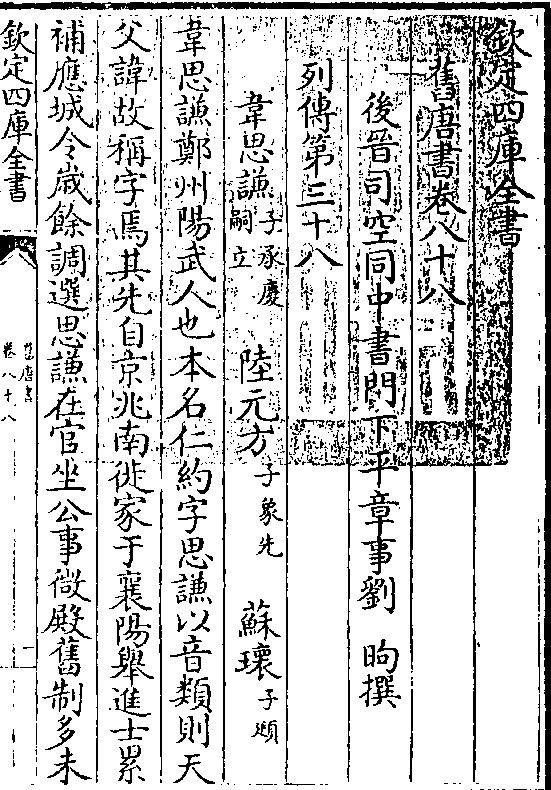 欽定四庫全書
舊唐書卷八十八
後晉司空同中書門下平章事劉昫撰
列傳第三十八
韋思謙子承慶嗣立 陸元方子象先 蘇瓌子頲
韋思謙鄭州陽武人也本名仁約字思謙以音類則天
父諱故稱字焉其先自京兆南徙家于襄陽舉進士累
補應城令歲餘調選思謙在官坐公事微殿舊制多未
欽定四庫全書
舊唐書
卷八十八
一